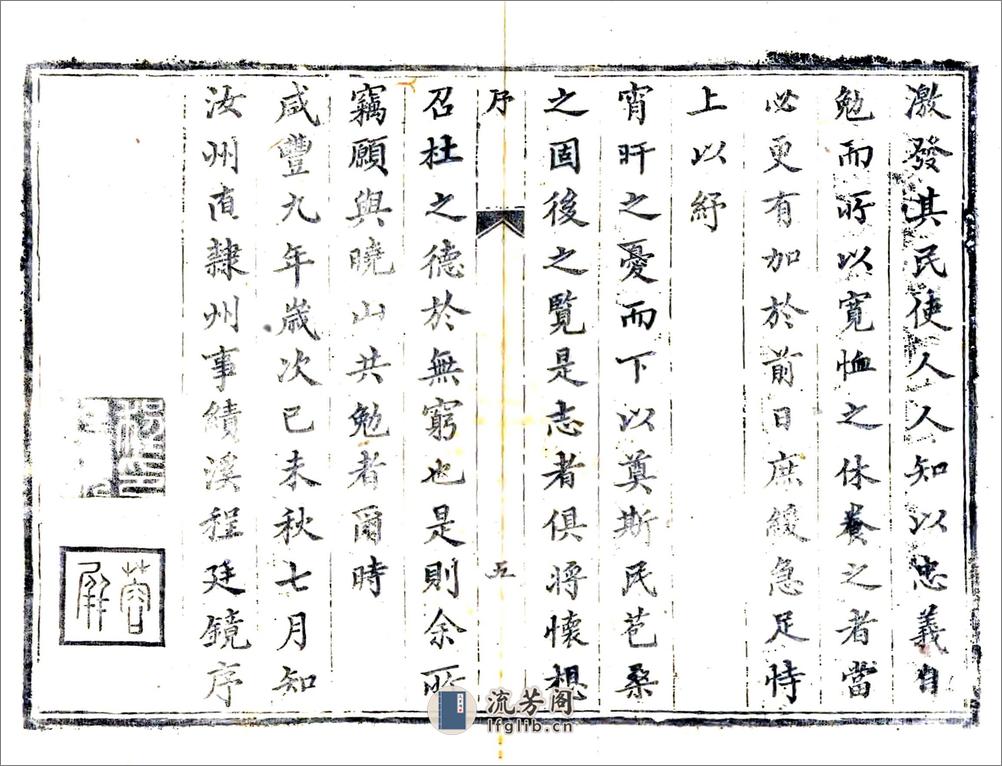 激發其民使人人知以忠義自
勉而所以寬恤之休養之者當
必更有加於前日庶緩急足恃
上以紓
宵旰之憂而下以奠斯民苞桑
之固後之覽是志者俱將懷想
序
五
召杜之德於無窮也是則余所
竊願與曉山共勉者爾時
咸豐九年歲次己未秋七月知
汝州直隸州事績溪程廷鏡序
流芳阁
lfglib.cn